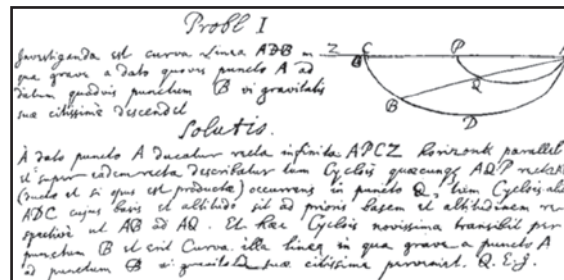 Probl I
Investiganda est curva Linea ADB in
qua grave a dato quovis puncto A ad
datum quodvis punctum B vi gravitatis
suæ citissimè descendet
Z C P A
B
B Q
D
Solutio.
A dato puncto A ducatur recta infinita APCZ horizonti parallela
et super eadem recta describatur tum Cyclois quæcunque AQP rectæ AB
(ductæ et si opus est productæ) occurrens in puncto Q, tum Cyclois alia
ADC cujus basis et altitudo sit ad prioris basem et altitudinem re-
spective ut AB ad AQ. Et hæc Cyclois novissima transibit per
punctum B et erit Curva illa linea in qua grave a puncto A
ad punctum B vi gravitatis suæ citissime perveniet. Q.E.I.